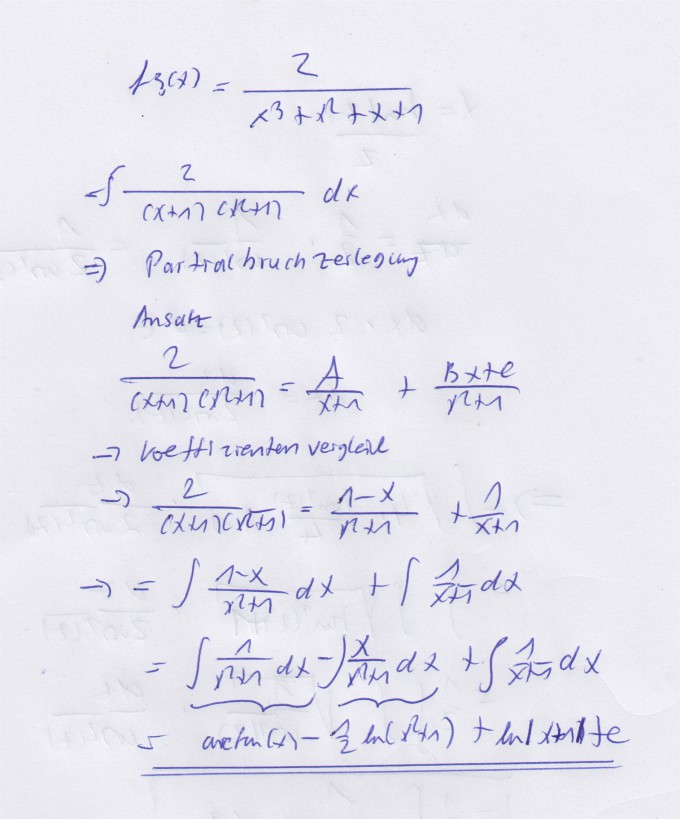 f₃(x) = 2 / (x³ + x² + x + 1)
= ∫ 2 / ((x+1)(x²+1)) dx
⇒ Partialbruchzerlegung
Ansatz
2 / ((x+1)(x²+1)) = A / (x+1) + (Bx+C) / (x²+1)
→ Koeffizientenvergleich
→ 2 / ((x+1)(x²+1)) = (1-x) / (x²+1) + 1 / (x+1)
→ = ∫ (1-x) / (x²+1) dx + ∫ 1 / (x+1) dx
= ∫ 1 / (x²+1) dx - ∫ x / (x²+1) dx + ∫ 1 / (x+1) dx
= arctan(x) - 1/2 ln(x²+1) + ln|x+1| + c